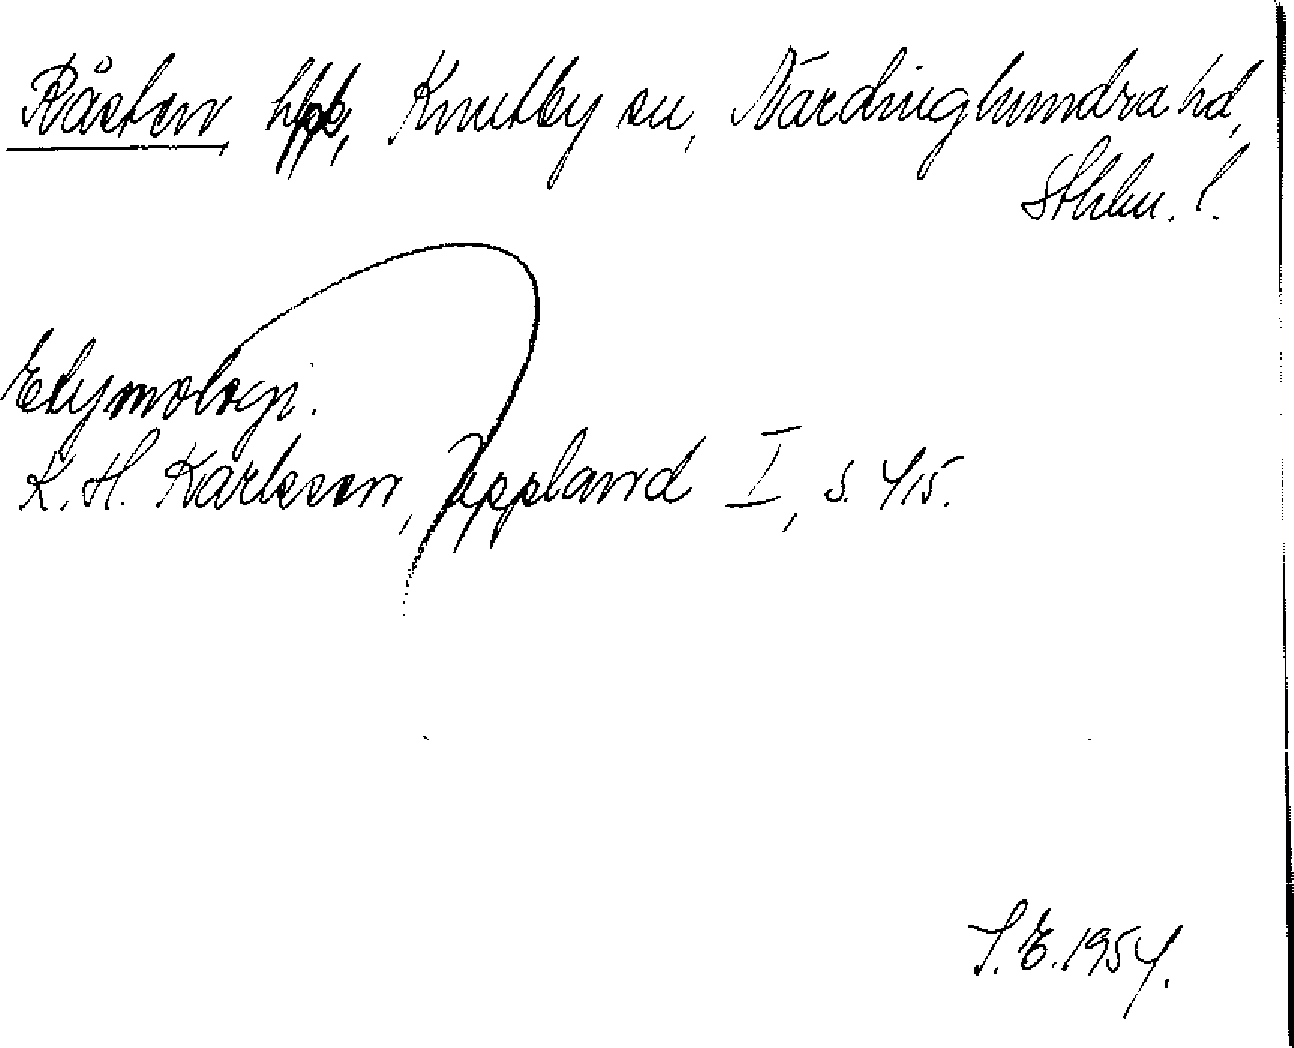 Råsten, hpl, Knutby sn, Närdinghundra hd,
Sthlm. l.
Etymologi.
K. H. Karlsson, Uppland I, s. 415.
S. E. 1954.